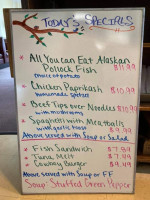 TODAY'S SPECIALS
All You Can Eat Alaskan
Pollock Fish $11.99
choice of potato
Chicken Paprikash $10.99
homemade spatzel
Beef Tips over Noodles $10.99
with mushrooms
Spaghetti with Meatballs
with garlic toast $9.99
Above served with Soup or Salad
Fish Sandwich $7.99
Tuna Melt $7.49
Cowboy Burger $9.49
Above served with Soup or FF
Soup Stuffed Green Pepper